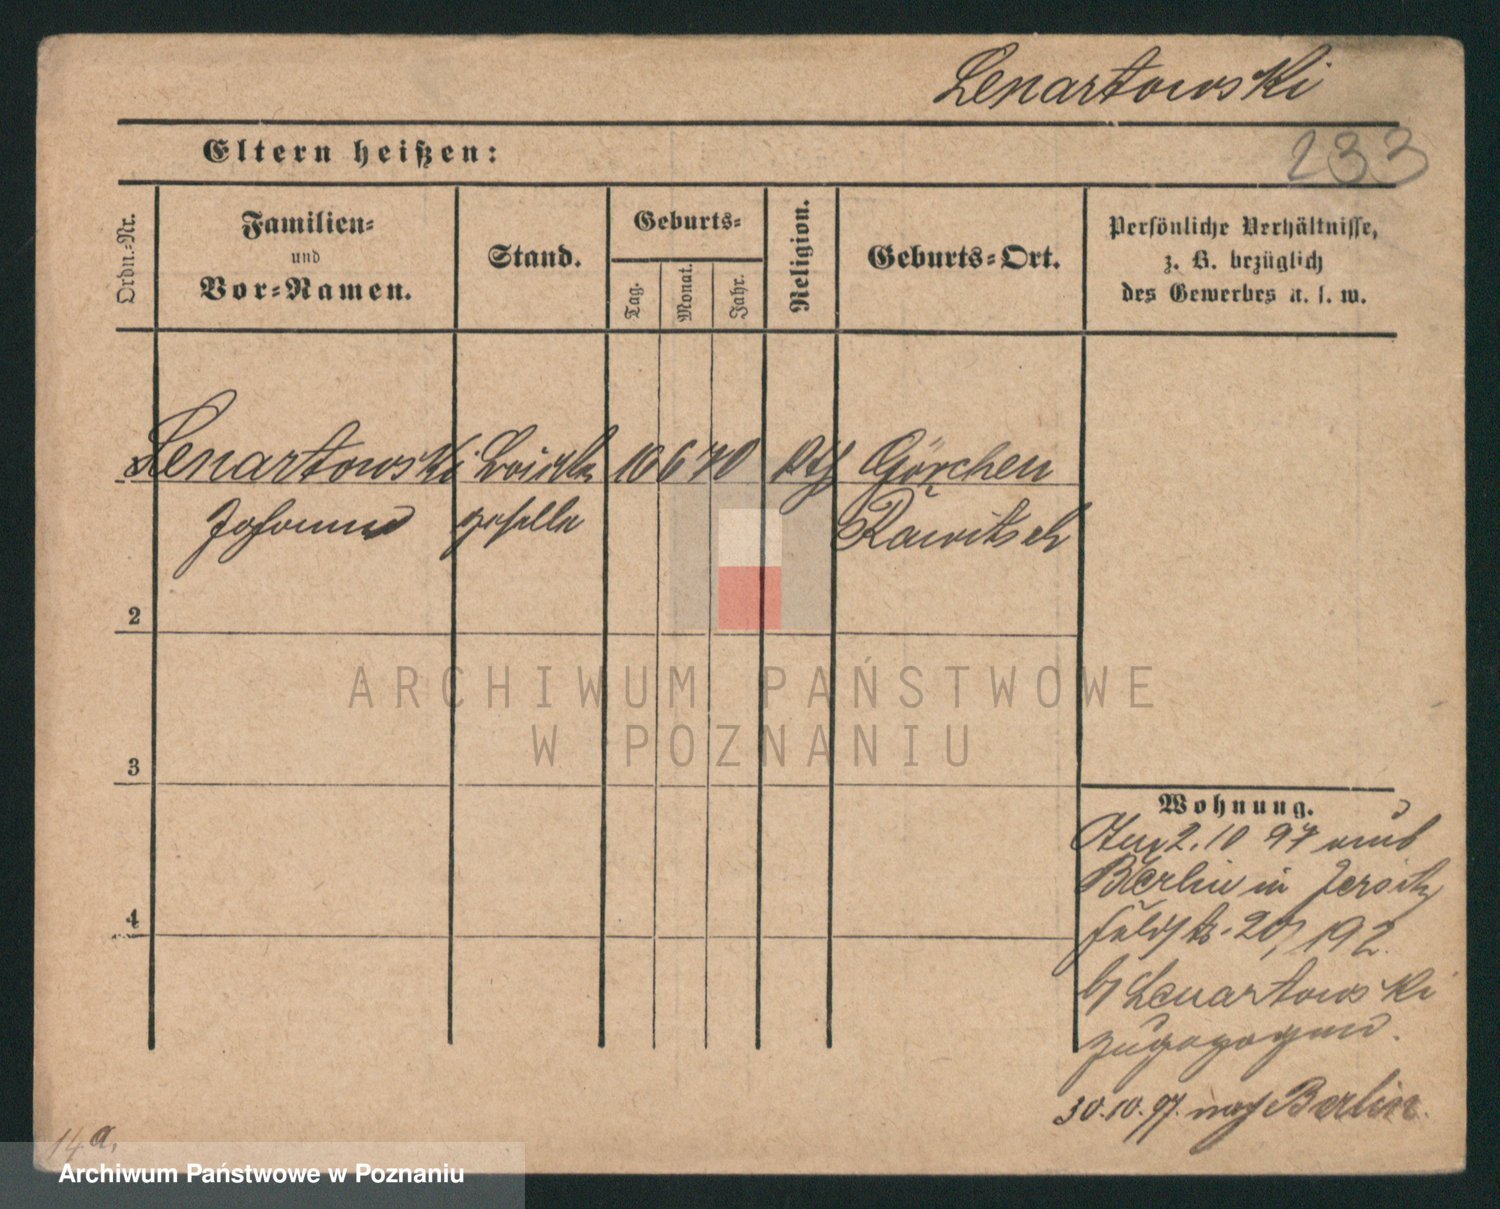 Lenartowski
233
Eltern heißen:
Ordn.-Nr.
Familien-
und
Vor-Namen.
Stand.
Geburts-
Tag.
Monat.
Jahr.
Religion.
Geburts-Ort.
Persönliche Verhältnisse,
z. B. bezüglich
des Gewerbes u. s. w.
Lenartowski 10 6 70 Kth Görchen
Johann geselle Rawitsch
2
3
4
ARCHIWUM PAŃSTWOWE
W POZNANIU
Wohnung.
2.10 97 aus
Berlin in Jersitz
20, 192.
b/ Lenartowski
zugezogen.
30.10.97. nach Berlin.
14 a.
Archiwum Państwowe w Poznaniu